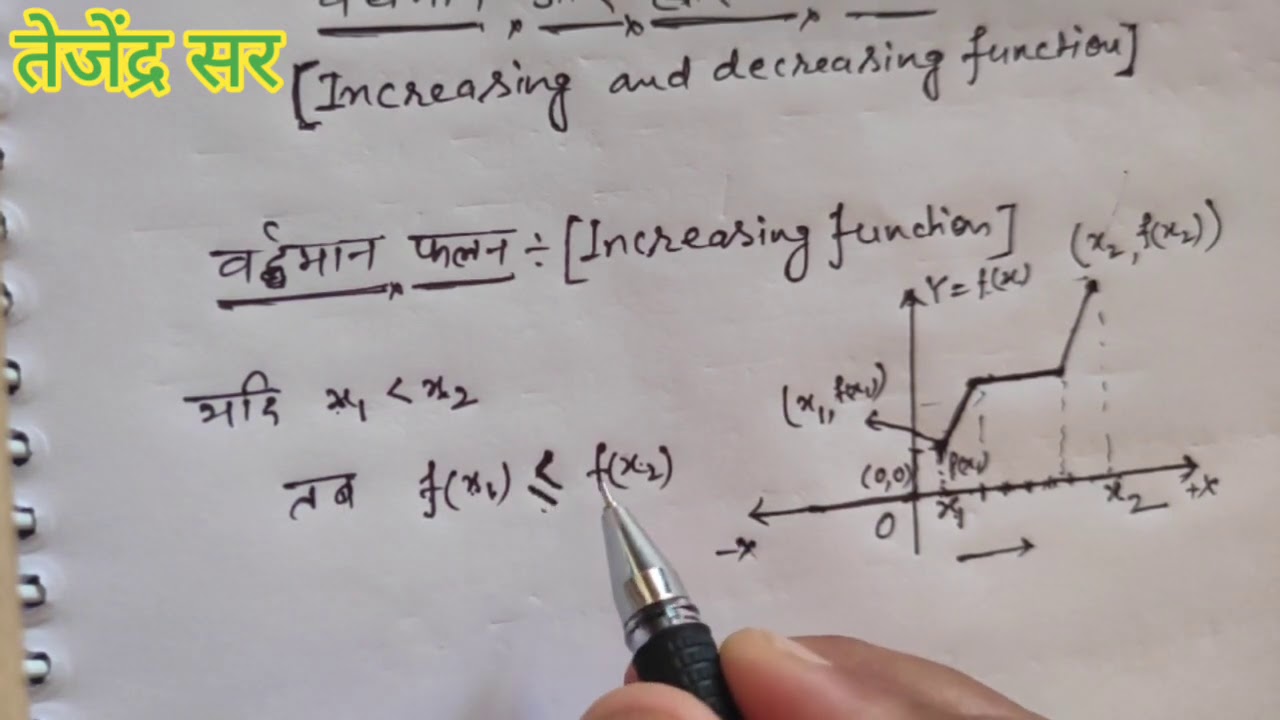 तेजेंद्र सर
[Increasing and decreasing function]
वर्द्धमान फलन ÷ [Increasing function]
(x₂, f(x₂))
Y = f(x)
यदि x₁ < x₂
(x₁, f(x₁))
तब f(x₁) ≤ f(x₂)
(0,0) f(x₁)
x₁ x₂ +x
-x O